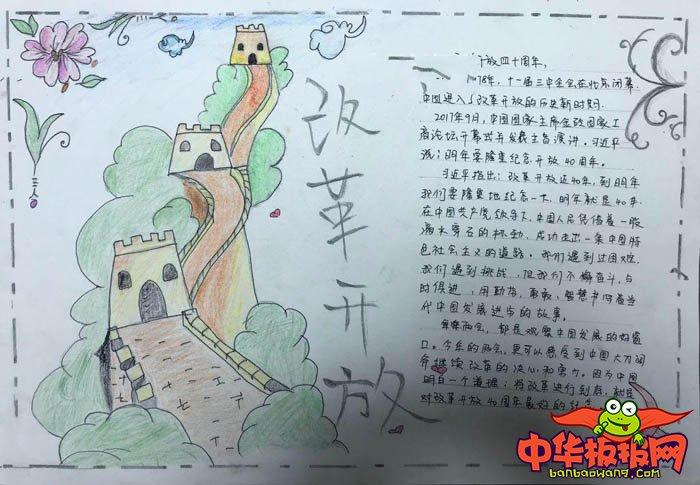 改革开放
放四十周年,
78年,十一届三中全会在北京闭幕.
中国进入了改革开放的历史新时期.
2017年9月,中国国家主席金砖国家工
商论坛开幕式并发表主旨演讲.习近平
说:明年要隆重纪念开放40周年。
习近平指出:改革开放近40年,到明年
我们要隆重地纪念一下,明年就是40年.
在中国共产党领导下,中国人民凭借着一股
滴水穿石的劲,成功走出一条中国特
色社会主义的道路。我们遇到过困难,
我们遇到挑战,但我们不懈奋斗,与
时俱进,用勤劳、勇敢、智慧书写着当
代中国发展进步的故事。
两会,都是观察中国发展的好窗
口。今年的两会,更可以感受到中国大刀阔
斧继续改革的决心和努力。因为中国
明白一个道理:将改革进行到底,就是
对改革开放40周年最好的纪念
中华板报网
banbaowang.com